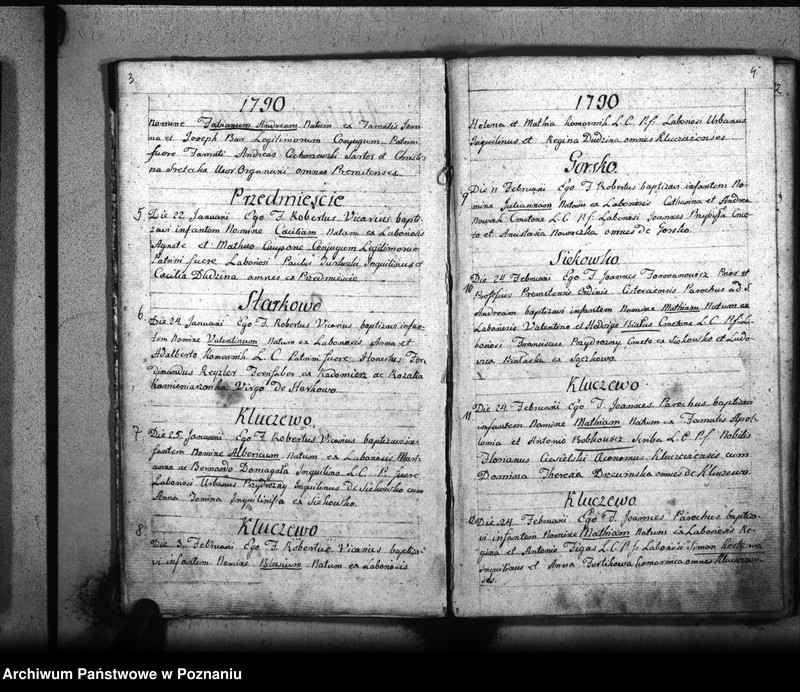 3
1790
Nomine Fabianum Andream Natum ex Famatis Joan
na et Joseph Bar Legitimorum Conjugum. Patrini
fuere Famati Andreas Cichorzewski Sartor et Christi
na Uxor Organarii omnes Premetenses.
Przedmieście
5. Die 22 Januarii Ego F. Robertus Vicarius bapti-
zavi infantem Nomine Caeciliam Natam ex Laboriosis
Agnete et Matheo Caupone Conjugum Legitimorum
Patrini fuere Laboriosi Paulus Inquilinus et
Caecilia Dudzina omnes ex Przedmieście
Starkowo
6. Die 24 Januarii Ego F. Robertus Vicarius baptizavi infan-
tem Nomine Valentinum Natum ex Laboriosis Anna et
Adalberto Komornik L. C. Patrini fuere Honestus Fer
dinandus Keyzler ex Radomierz ac Rozalia
Kamieniarzonka Virgo de Starkowo
Kluczewo
7. Die 25 Januarii Ego F. Robertus Vicarius baptizavi in-
fantem Nomine Albericum Natum ex Laboriosis Mari-
anna ac Bernardo Domagała Inquilino L. C. P. fuere
Laboriosi Urbanus Przydrozny Inquilinus de Siekowko cum
Anna Tomina Inquilinissa ex Siekowko.
Kluczewo
8. Die 3 Februarii Ego F. Robertus Vicarius baptiza-
vi infantem Nomine Blasium Natum ex Laboriosis
4
1790
Helena et Mathia Komornik L. C. P. f. Laboriosi Urbanus
Inquilinus et Regina Dudzina omnes Kluczewienses
Gorsko
9 Die 11 Februarii Ego F. Robertus baptizavi infantem No
mine Juliannam Natam ex Laboriosis Catharina et Andrea
Nowak Cmetone L. C. P. f. Laboriosi Joannes Przybyła Cme
to et Anastasia Nowaczka omnes de Gorsko.
Siekowko
10 Die 24 Februarii Ego F. Joannes Prior et
Professus Premetensis Ordinis Cisterciensis Parochus ad S.
Andream baptizavi infantem Nomine Mathiam Natum ex
Laboriosis Valentino et Hedvige Białas Cmetone L. C. P. f. La-
boriosi Franciscus Przydrozny Cmeto ex Siekowko et Ludo
vica Białaska ex Sączkowo.
Kluczewo
11 Die 24 Februarii Ego F. Joannes Parochus baptizavi
infantem Nomine Mathiam Natum ex Famatis Apol-
lonia et Antonio Bobkowicz Scriba L. C. P. f. Nobilis
Florianus Cieśielski Aeconomus Kluczewiensis cum
Domina Theresia omnes de Kluczewo.
Kluczewo
12 Die 24 Februarii Ego F. Joannes Parochus baptiza-
vi infantem Nomine Mathiam Natum ex Laboriosis Re-
gina et Antonio Figas L. C. P. f. Laboriosi Simon
Inquilinus et Anna Komornica omnes Kluczewi-
ses.
Archiwum Państwowe w Poznaniu